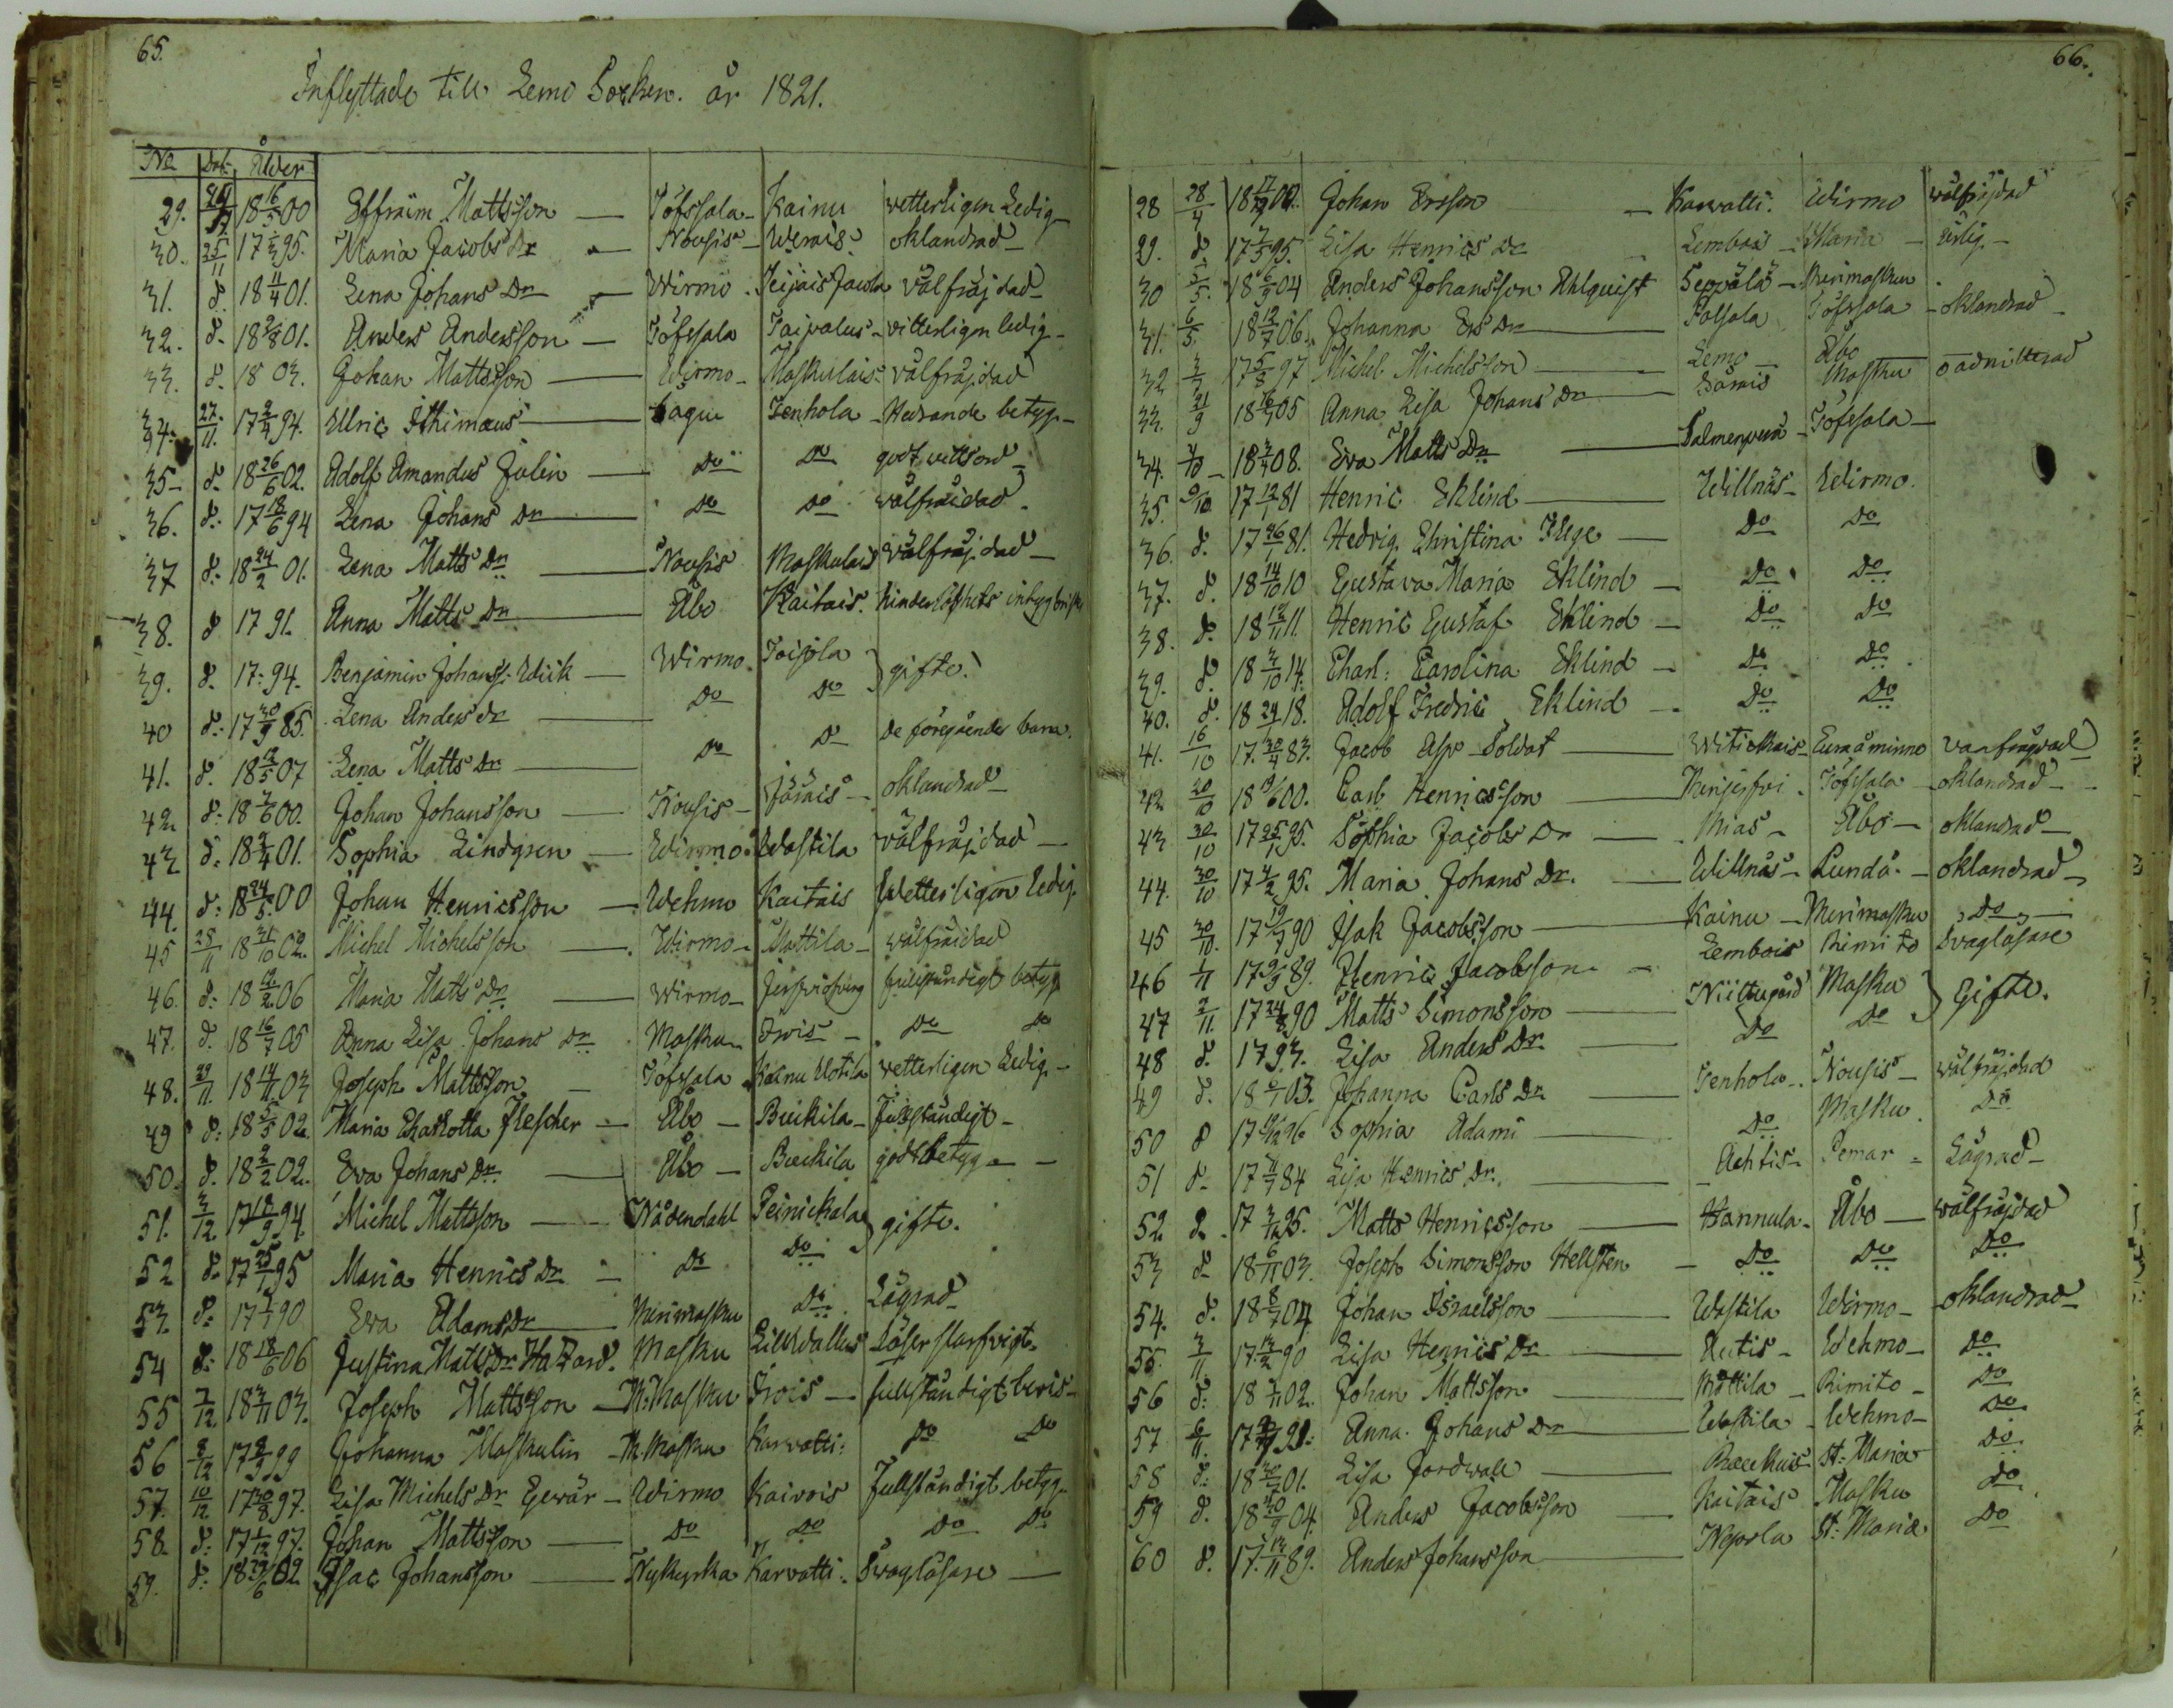 65.
Inflyttade till Lemo Socken. år 1821.
No Dat. Ålder
29. 18 16/5 00 Effraim Mattsson — Töfssala - Kainu wetterligen Ledig -
30. 25/11 17 95. Maria Jacobs Dr — Nousis - Werais oklandrad -
31. d. 18 11/4 01. Lena Johans Dr — Wirmo - Jacola wälfräjdad -
32. d. 18 01. Anders Andersson — Töfssala Taipalus - vitterligen ledig -
33. d. 18 03. Johan Mattsson — Wirmo - Maskulais - välfräjdad
34. 27/11. 17 94. Ulric — Tenhola - Hedrande betyg -
35 - d. 18 26/6 02. Adolf Amandus Julin — Do Do godt vittsord -
36. d: 17 18/6 94 Lena Johans Dr — Do Do wälfräidad -
37 d: 18 24/2 01. Lena Matts Dr — Nousis Maskulais wälfräjdad -
38. d 17 91. Anna Matts Dr — Åbo Kaitais.
39. d. 17 - 94. Benjamin Johanss: Wiik — Wirmo - Toijola } gifte!
40 d: 17 30/9 85. Lena Anders dr — Do Do
41. d. 18 12/5 07 Lena Matts Dr — Do Do De föregåendes barn.
42. d: 18 7/6 00. Johan Johansson — Nousis - Järäis - oklandrad -
43 d. 18 01. Sophia Lindgren — Wirmo. Wastila wälfräjdad —
44. d: 18 24/5. 00 Johan Henricsson — Wehmo Kaitais Wetterligen Ledig.
45 25/11 18 31/10 02. Michel Michelsson — Wirmo - Mattila - wälfräidad
46. d: 18 12/2 06 Maria Matts Dr — Wirmo - fullständigt betyg
47. d. 18 16/7 05 Anna Lisa Johans Dr Masku - Irois - Do Do
48. 29/11. 18 14/11. 03 Joseph Mattsson — Töfssala - Kainu Uotila vetterligen Ledig. -
49 d: 18 5/5 02. Maria Charlotta Flescher — Åbo - Buckila - Fullständigt -
50. d. 18 2/2 02. Eva Johans Dr — Åbo - Buckila godt betyg —
51. 3/12 17 18/9. 94. Michel Mattsson — Nådendahl Peinickala } gifte.
52 d. 17 25/1 95 Maria Henrics Dr — Do Do
53. d. 17 1/1 90 Eva Adams Dr — Merimasku Do Lägrad -
54 d: 18 18/6 06 Justina Matts Dr Masku Lillwallus
55 7/12 18 3/11 03. Joseph Mattsson — M: Masku Irois — fullständigt bevis -
56 8/12 17 99 Johanna Maskulin - M. Masku Karvatti: Do Do
57. 10/12 17 30/8 97. Lisa Michels Dr Gewär - Wirmo Kaivois Fullständigt betyg.
58. d: 17 1/12 97. Johan Mattsson — Do Do Do Do
59. d: 18 29/6 02 Isac Johansson — Nykyrka Karvatti: Svagläsare —
66.
28 28/4 18 00. Johan Ersson — Karvatti. Wirmo wälfräjdad
29. d. 17 95. Lisa Henrics Dr — Lembois - Maria - ärlig. -
30 5/5. 18 6/9 04 Anders Johansson Ahlquist Seppälä - Merimasku
31. 6/5. 18 12/7 06. Johanna Ers Dr — Palsala Töfssala - oklandrad -
32 17 5/8 97 Michel Michelsson — Lemo - Åbo
33. 21/9 18 16/7 05 Anna Lisa Johans Dr — Särais Masku oadmitterad
34. 18 08. Eva Matts Dr — Salmenperä - Töfssala —
35. 17 12/1 81 Henric Eklind — Willnäs - Wirmo.
36. d. 17 26/1 81. Hedvig Christina — Do Do
37. d. 18 14/10 10 Gustava Maria Eklind — Do Do
38. d. 18 12/11 11. Henric Gustaf Eklind — Do Do
39. d. 18 3/10 14. Charl: Carolina Eklind — Do Do
40. d. 18 18. Adolf Fredric Eklind — Do Do
41. 16/10 17. 30/4 83. Jacob Asp Soldat — Witickais - Euraåminne
42 20/10 18 00. Carl Henricsson — Töfssala - oklandrad -
43 30/10 17 25/1 95. Sophia Jacobs Dr — Mias - Åbo — oklandrad —
44. 30/10 17 4/2 95. Maria Johans Dr. — Willnäs - Lundå - oklandrad -
45 30/10. 17 19/7 90 Isak Jacobsson — Kainu - Merimasku Do —
46 1/11 17 89. Henric Jacobsson — Lembois Rimito Svagläsare
47 2/11. 17 24/8 90 Matts Simonsson — Masku } Gifte.
48 d. 17 93. Lisa Anders Dr — Do Do
49 d. 18 6/1 03. Johanna Carls Dr — Tenhola - Nousis — wälfräjdad
50 d 17 96 Sophia Adami — Do Masku Do
51 d - 17 84 Lisa Henrics Dr. — Achtis - Pemar - Lägrad -
52. d. 17 3/12 95. Matts Henricsson — Hannula - Åbo — wälfräjdad
53 d - 18 6/11 03. Joseph Simonsson Hellsten — Do Do Do
54. d. 18 8/7 04. Johan Israelsson — Wastila Wirmo - oklandrad -
55. 3/11 17 13/2 90 Lisa Henrics Dr — Autis - Wehmo - Do
56 d: 18 02. Johan Mattsson — Mattila - Rimito - Do
57 6/11. 17 91. Anna Johans Dr — Wastila - Wehmo - Do
58 d: 18 01. Lisa Jordwall — St. Maria Do
59 d. 18 30/9 04. Anders Jacobsson — Kaitais Masku Do
60 d. 17. 13/11 89. Anders Johansson — St. Maria Do